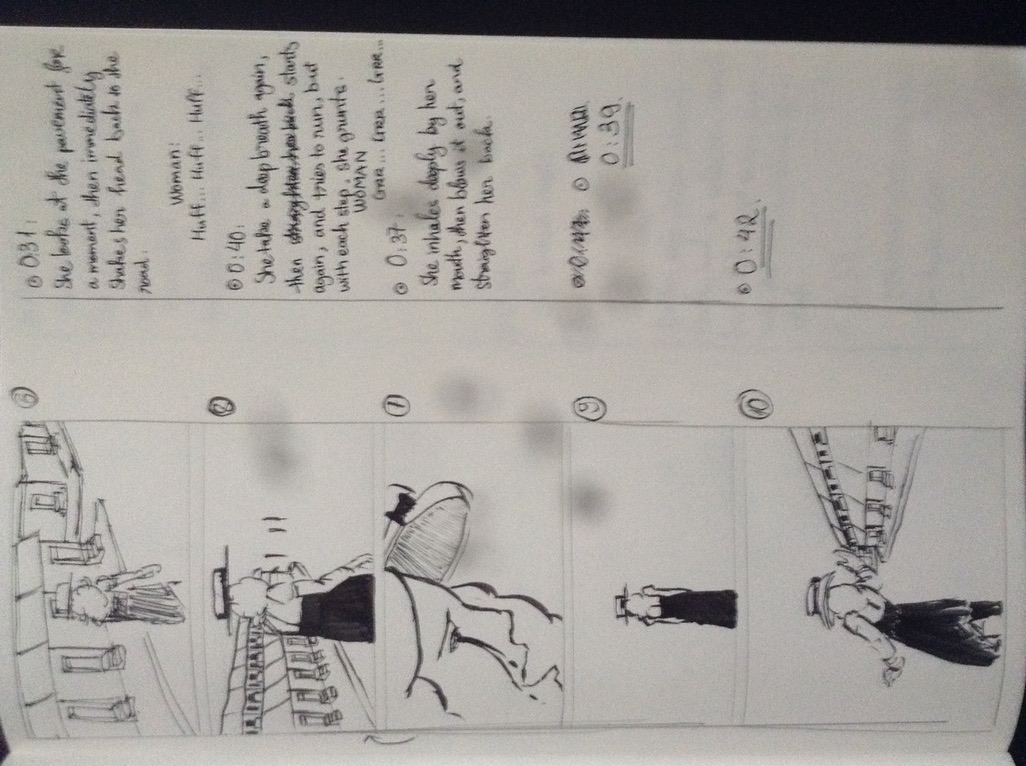 ⑥
⊙ 0:31:
She looks at the pavement for
a moment, then immediately
shakes her head back to the
road.
Woman:
Huff... Huff... Huff...
⑧
⊙ 0:40:
She take a deep breath again,
then straighten her back starts
again, and tries to run, but
with each step, she grunts.
WOMAN
Grr... Grr... Grr...
⑦
⊙ 0:37:
She inhales deeply by her
mouth, then blows it out, and
straighten her back.
⑨
0:39.
⑩
⊙ 0:42.